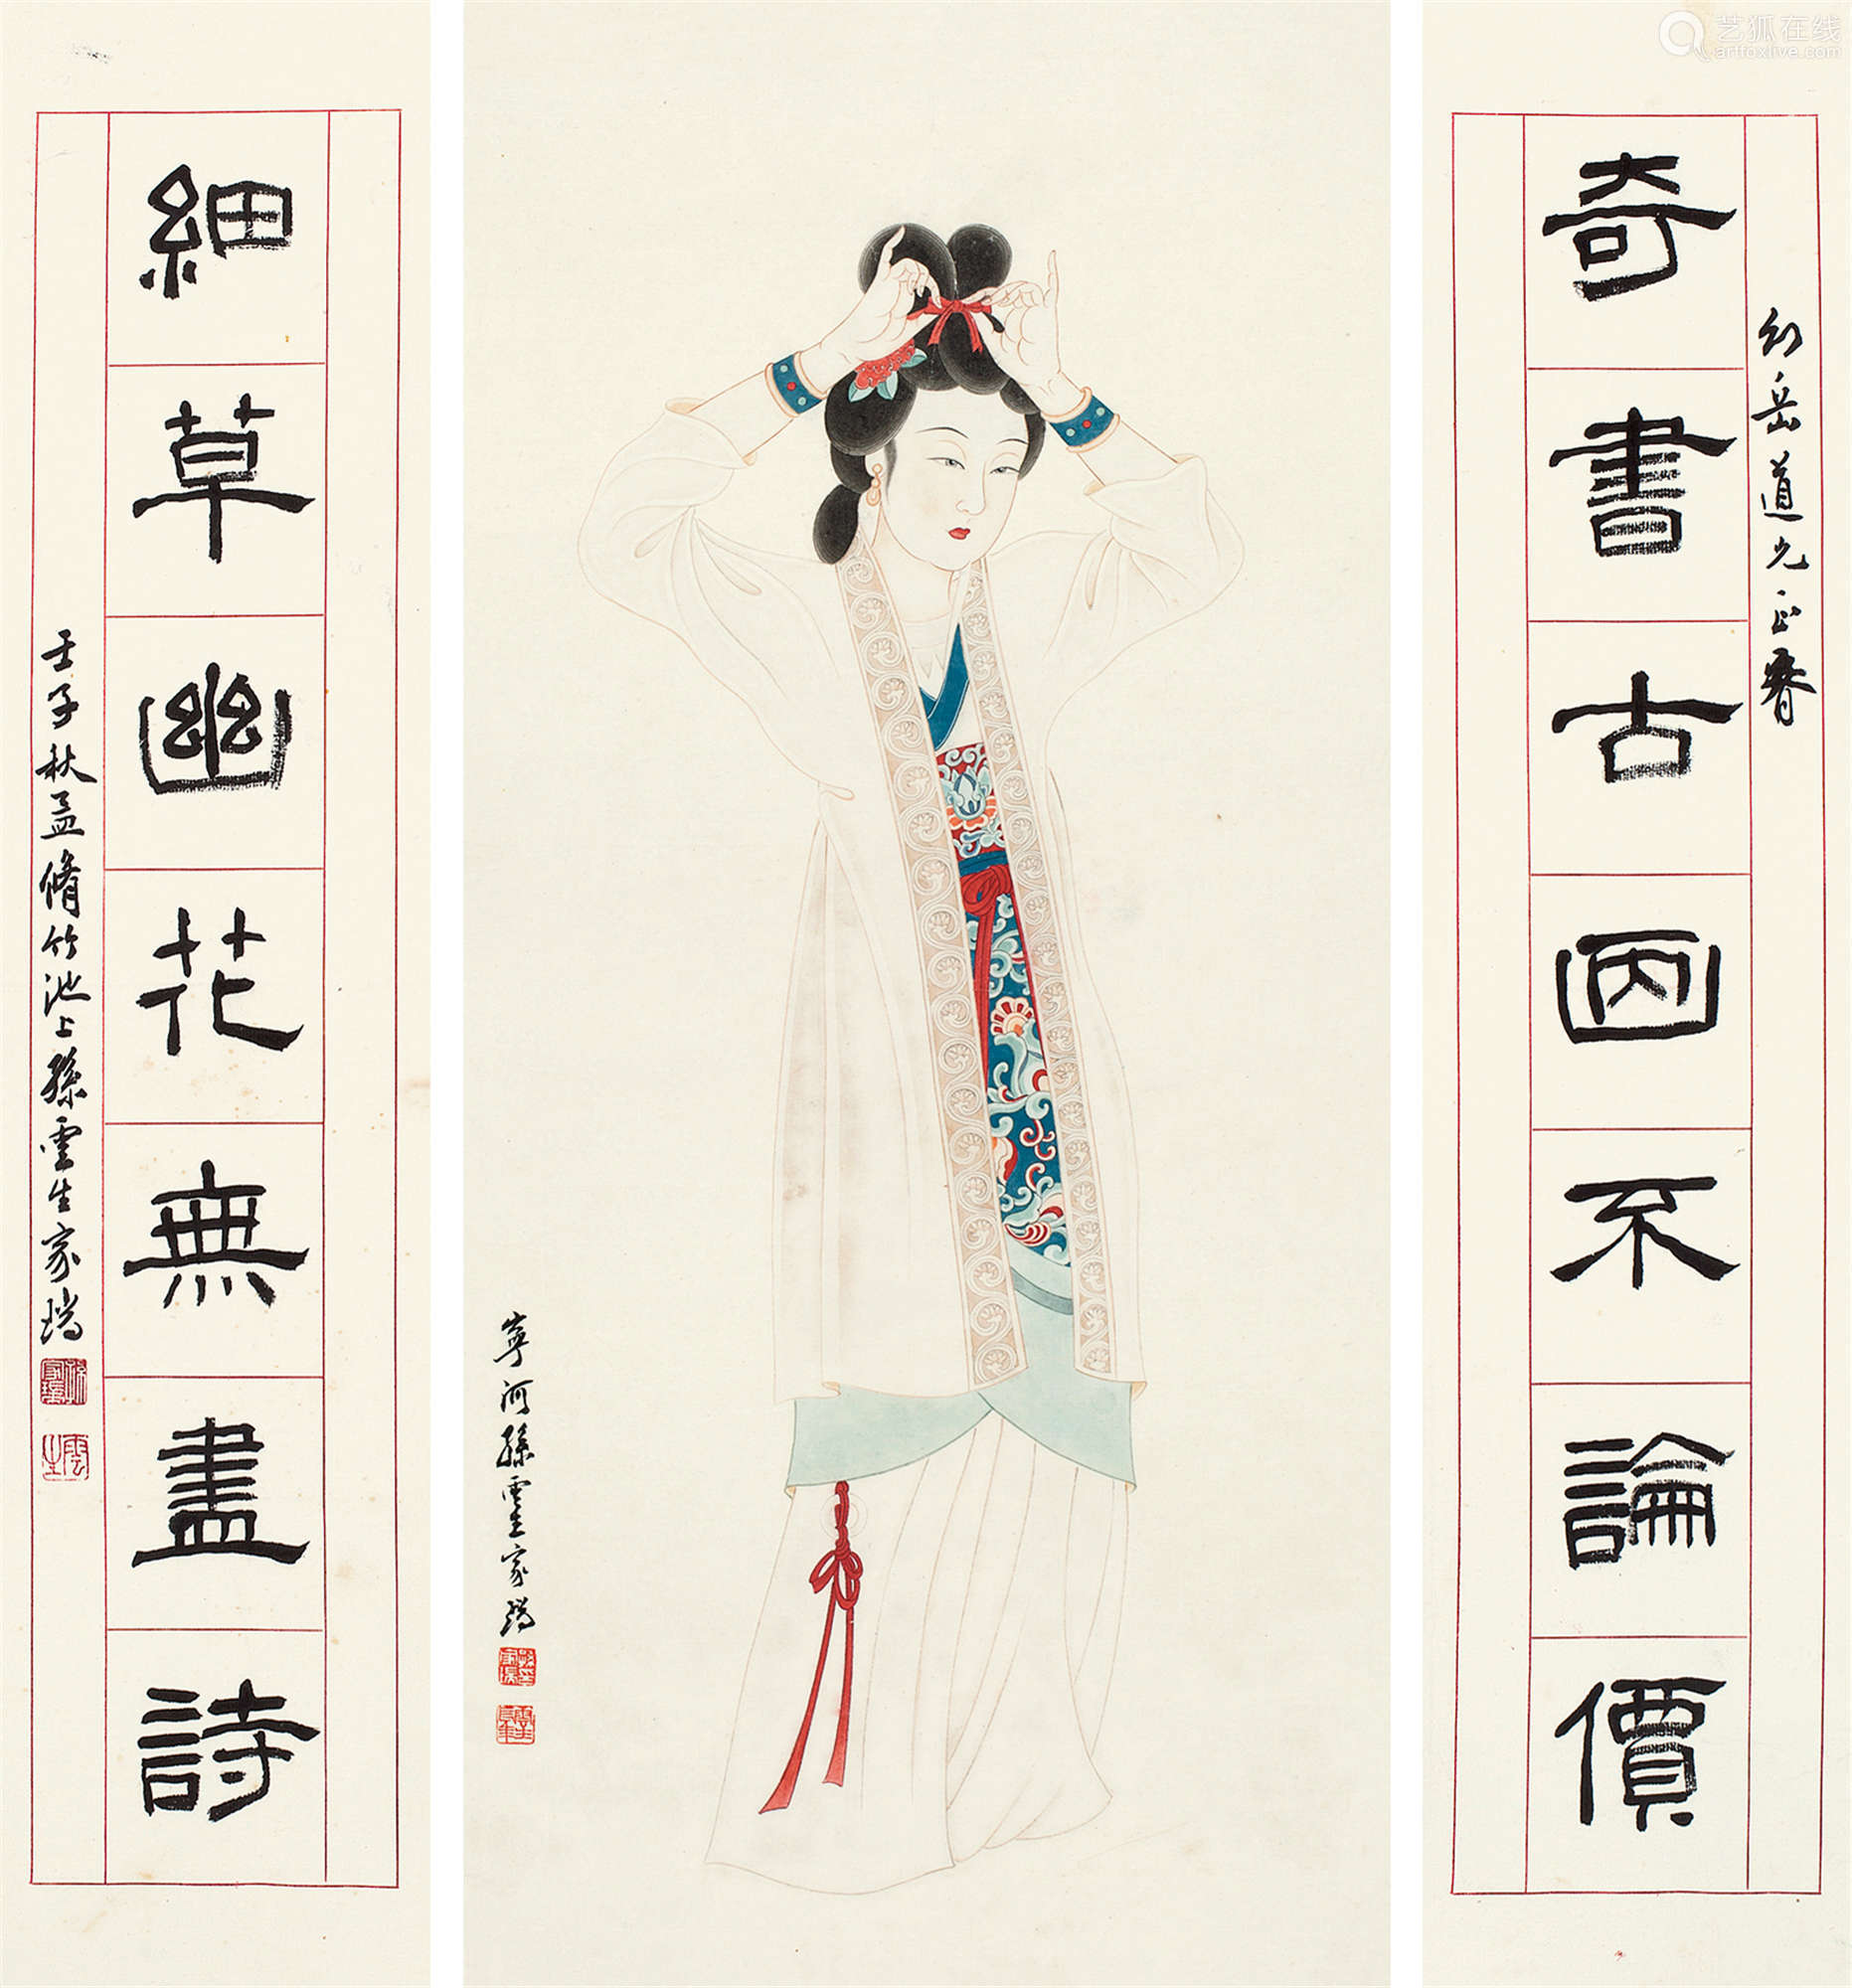 艺狐在线
artfoxlive.com
岳道兄正
奇書古画不論價
寧河孫雲生家瑞
細草幽花無盡詩
壬子秋孟脩竹池上孫雲生家瑞
孫家瑞
雲生